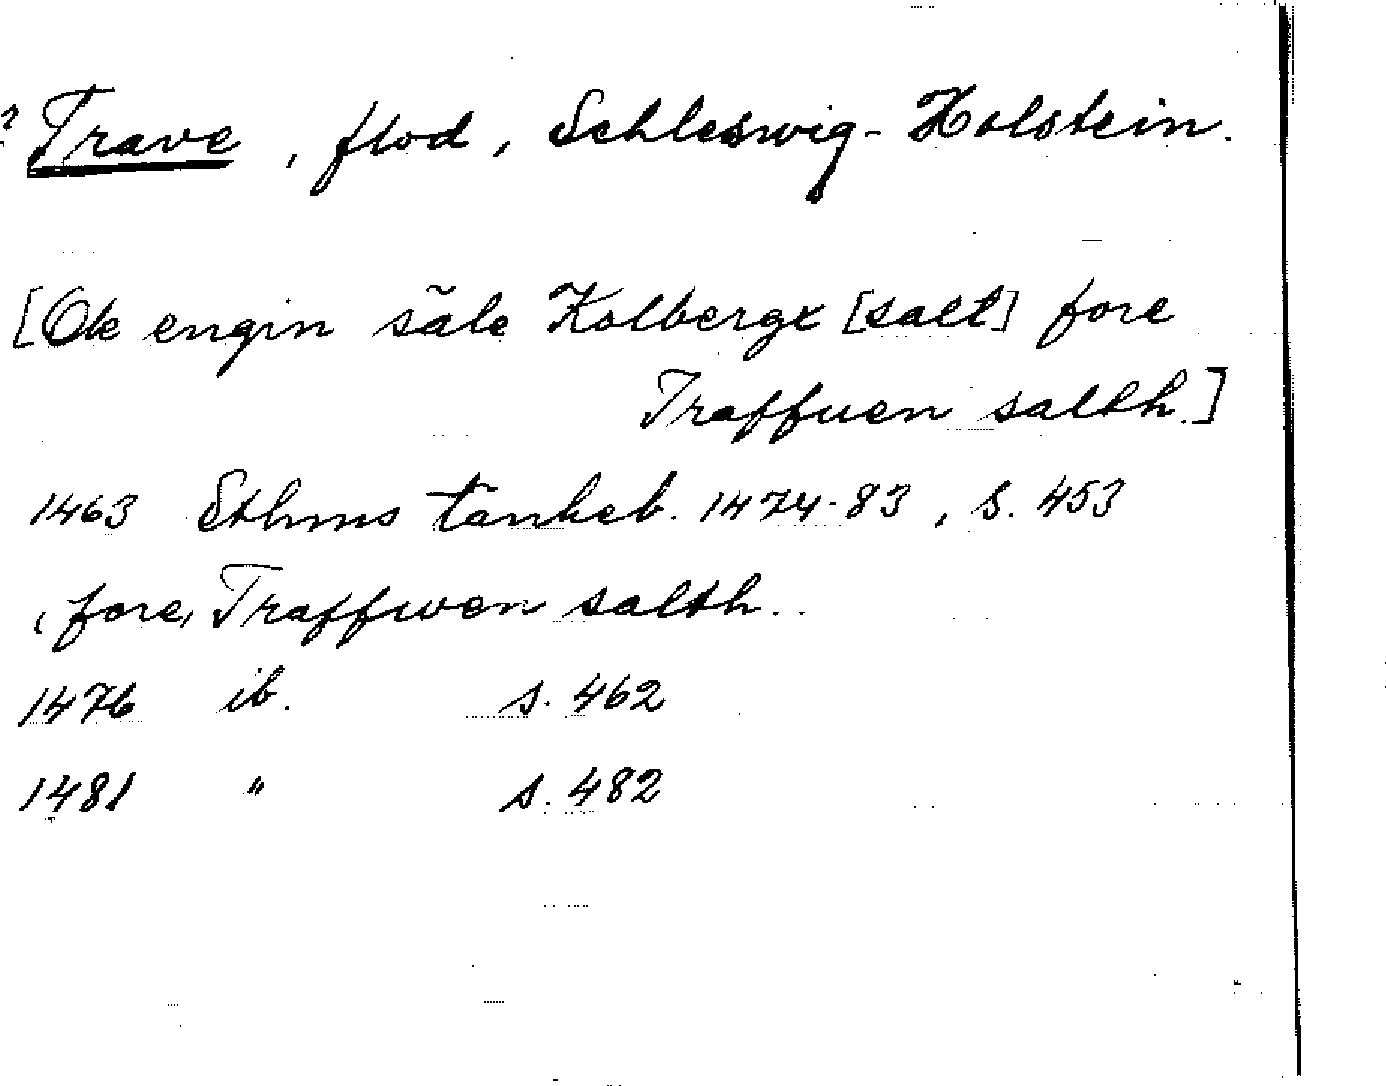 ? Trave, flod, Schleswig-Holstein.
[Ok engin säle Kolbergx [salt] fore
Traffuen salth.]
1463 Sthms tänkeb. 1474-83, s. 453
(fore) Traffwen salth..
1476 ib. s. 462
1481 " s. 482